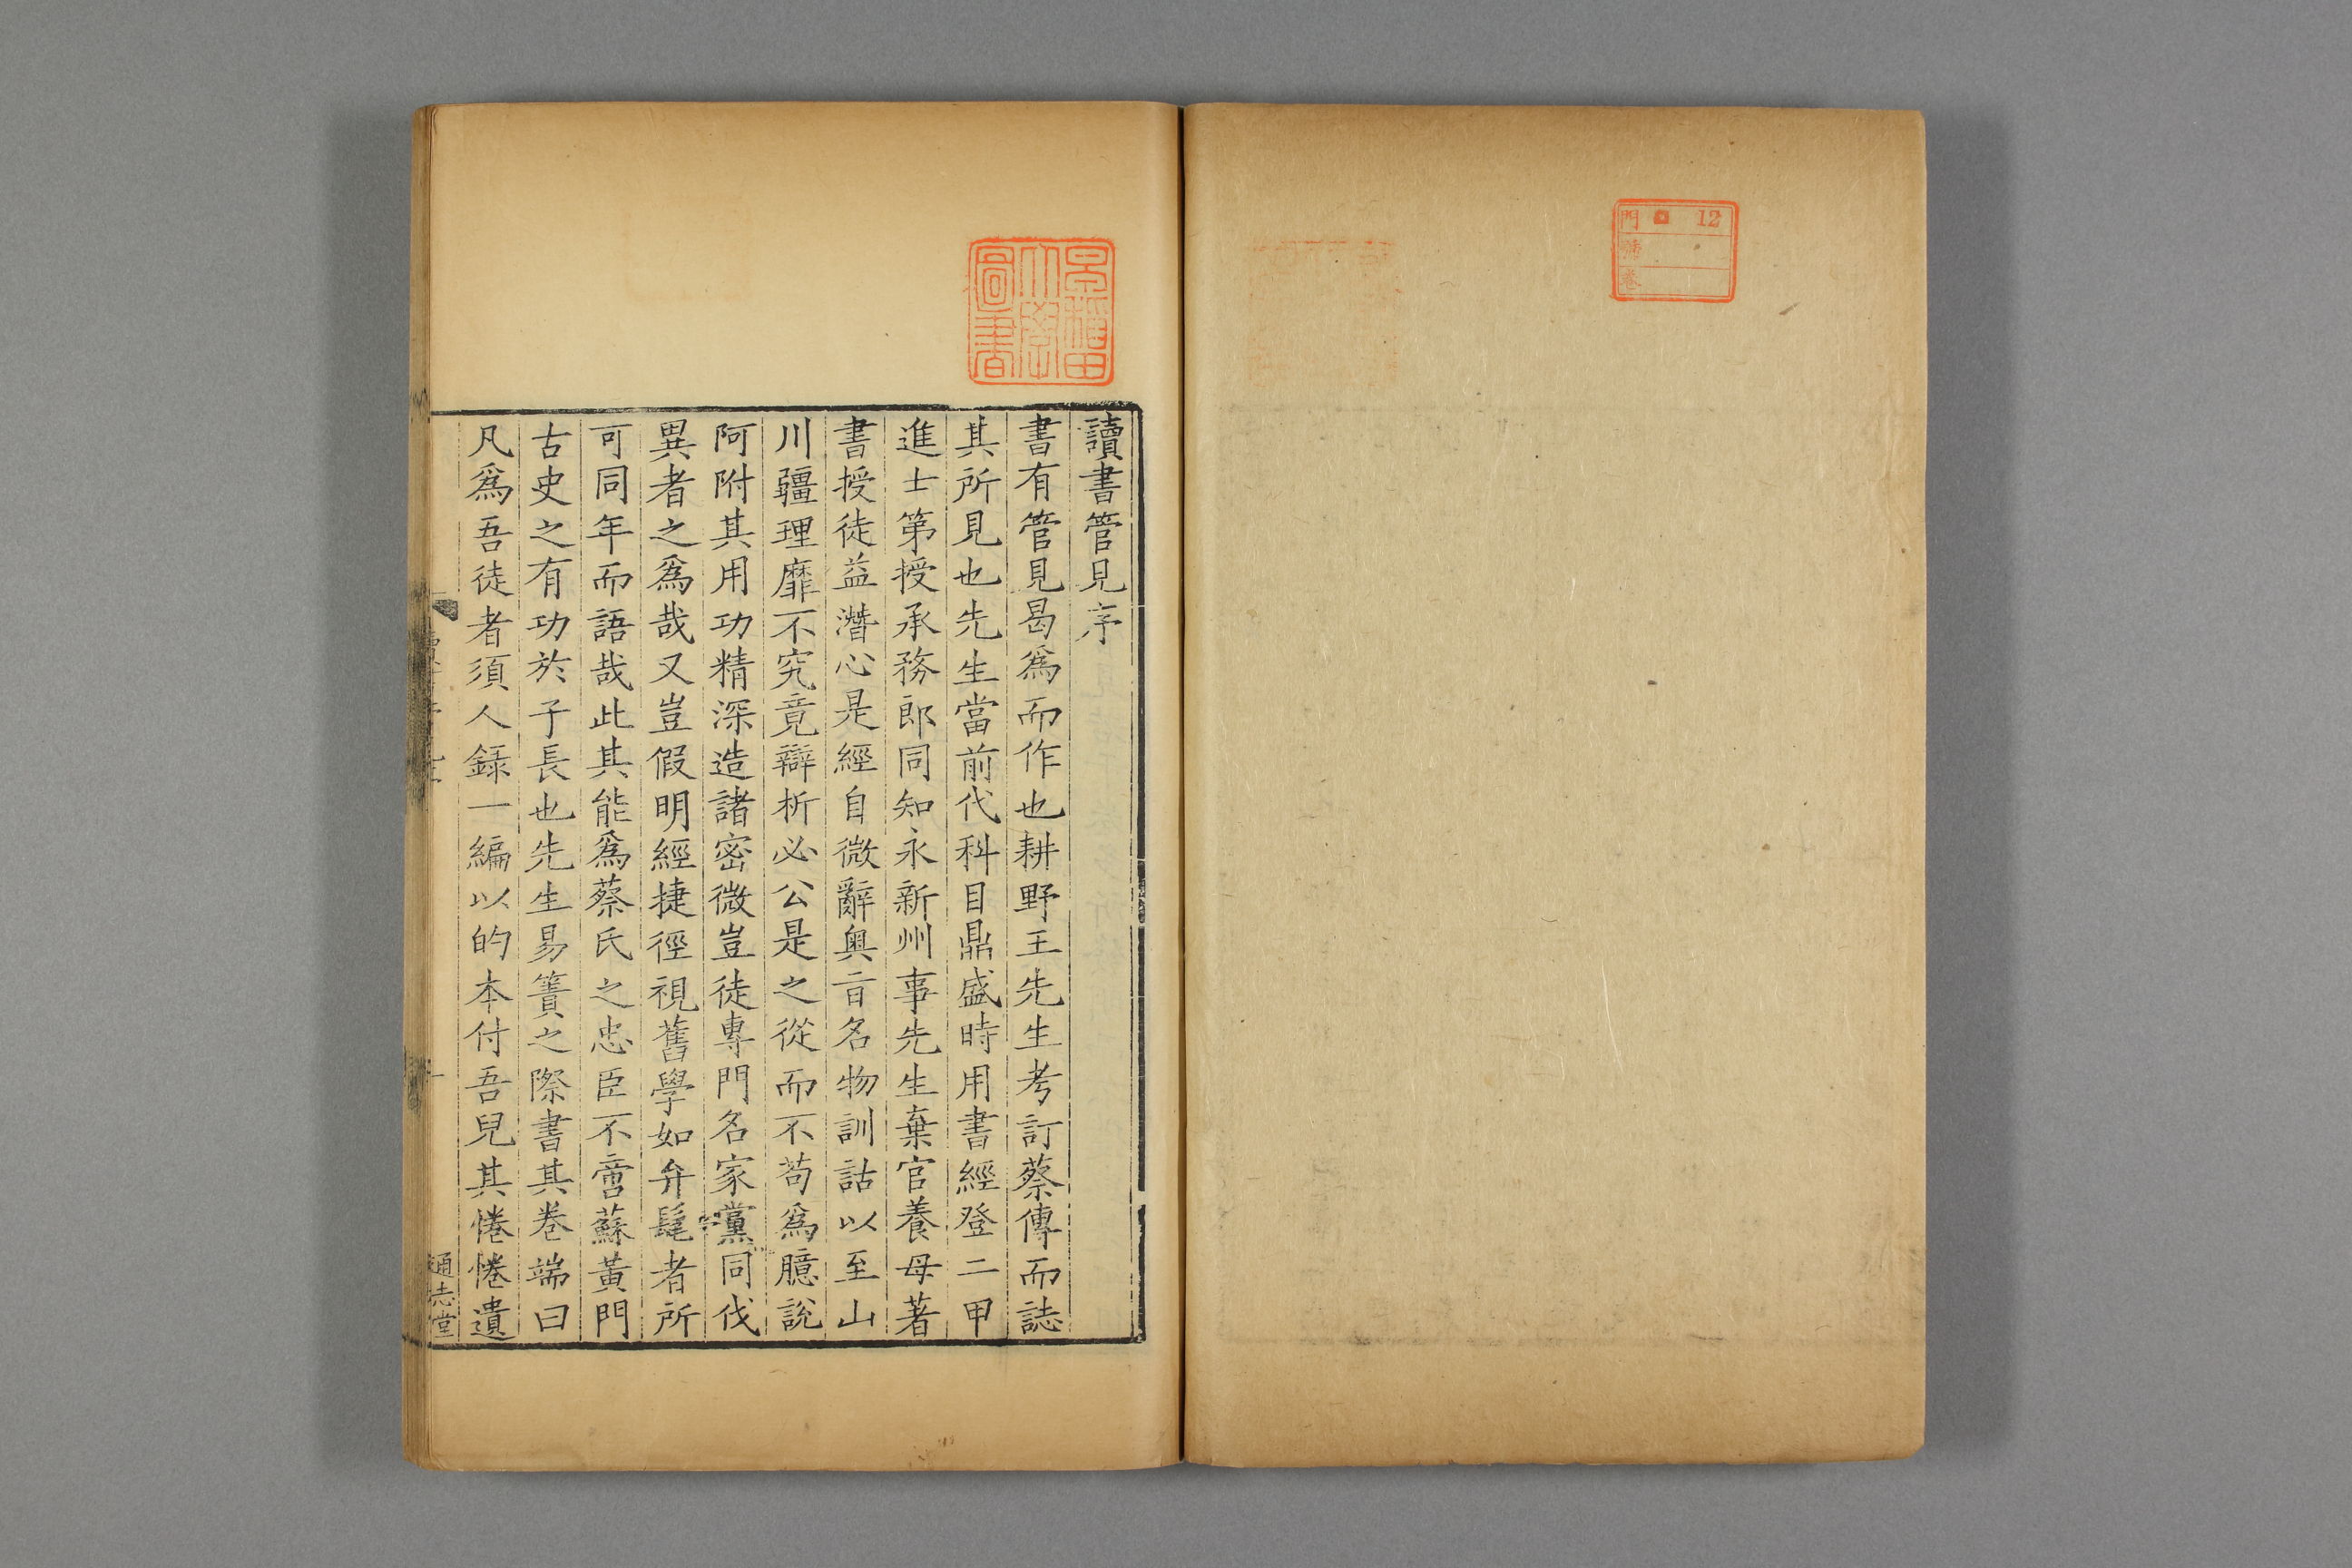 門 12
號
卷
早稲田
大學
圖書
讀書管見序
書有管見曷爲而作也耕野王先生考訂蔡傳而誌
其所見也先生當前代科目鼎盛時用書經登二甲
進士第授承務郎同知永新州事先生棄官養母著
書授徒益潛心是經自微辭奧㫖名物訓詁以至山
川疆理靡不究竟辯析必公是之從而不苟爲臆說
阿附其用功精深造諸密微豈徒專門名家黨同伐
異者之爲哉又豈假明經捷徑視舊學如弁髦者所
可同年而語哉此其能爲蔡氏之忠臣不啻蘇黃門
古史之有功於子長也先生易簀之際書其卷端曰
凡爲吾徒者須人錄一編以的本付吾兒其惓惓遺
通志堂